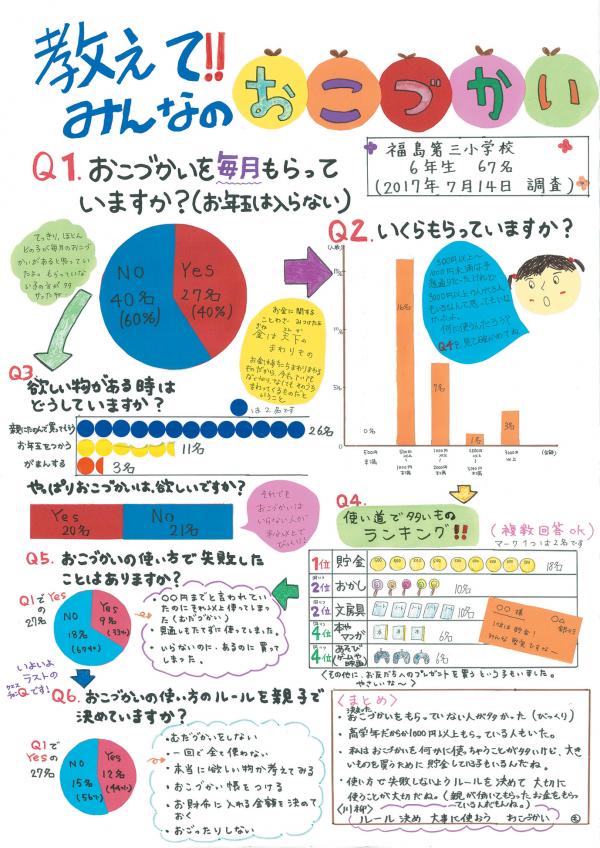 教えて!!
みんなの
おこづかい
福島第三小学校
6年生 67名
(2017年7月14日 調査)
Q1. おこづかいを毎月もらって
いますか?(お年玉は入らない)
No
40名
(60%)
Yes
27名
(40%)
お金に関する
ことわざ みつけたよ
金は天下の
まわりもの
Q2. いくらもらっていますか?
(人数)
0名
16名
7名
1名
3名
500円
未満
500円
以上
1000円
未満
1000円
以上
3000円
以上
(金額)
500円以上〜
1000円未満は予
想通りだったけれど
3000円以上の人が3人も
いるなんて思ってもいな
かったよ。
何に使うんだろう?
Q4を見て確かめてね。
Q3
欲しい物がある時は
どうしていますか?
は2名です
親にたのんで買ってもらう
26名
お年玉をつかう
11名
がまんする
3名
やっぱりおこづかいは、欲しいですか?
Yes
20名
No
21名
それでも
おこづかいは
いらない人が
半分以上で
びっくり!
Q4.
使い道で多いもの
ランキング!!
(複数回答ok)
マーク1つは2名です
1位 貯金 18名
2位 おかし 10名
2位 文房具 10名
4位 本や
マンガ 6名
4位 あそび
(ゲームや
映画) 6名
<その他に、お友だちへのプレゼントを買うという子もいました。
やさしいな〜>
Q5. おこづかいの使い方で失敗した
ことはありますか?
Q1で
Yesの
27名
No
18名
(67%)
Yes
9名
(33%)
・〇〇円までと言われてい
たのにそれ以上使ってしまっ
た(むだづかい)
・見通しもたてずに使っていました。
・いらないのに、あるのに買って
しまった。
いよいよ
ラストの
Qです!
Q6. おこづかいの使い方のルールを親子で
決めていますか?
Q1で
Yesの
27名
No
15名
(56%)
Yes
12名
(44%)
・むだづかいをしない
・一回で全て使わない
・本当に欲しい物か考えてみる
・おこづかい帳をつける
・お財布に入れる金額を決めて
おく
・おごったりしない
<まとめ>
・決まったおこづかいをもらっていない人が多かった(びっくり)
・高学年だからか1000円以上もらっている人もいた。
・私はおこづかいを何かに使っちゃうことが多いけど、大き
いものを買うために貯金している子もいるんだね。
・使い方で失敗しないようルールを決めて 大切に
使うことが大切だね。(親が働いてもらったお金をもらっ
ているんだもんね。)
<川柳>
ルール決め 大事に使おう おこづかい